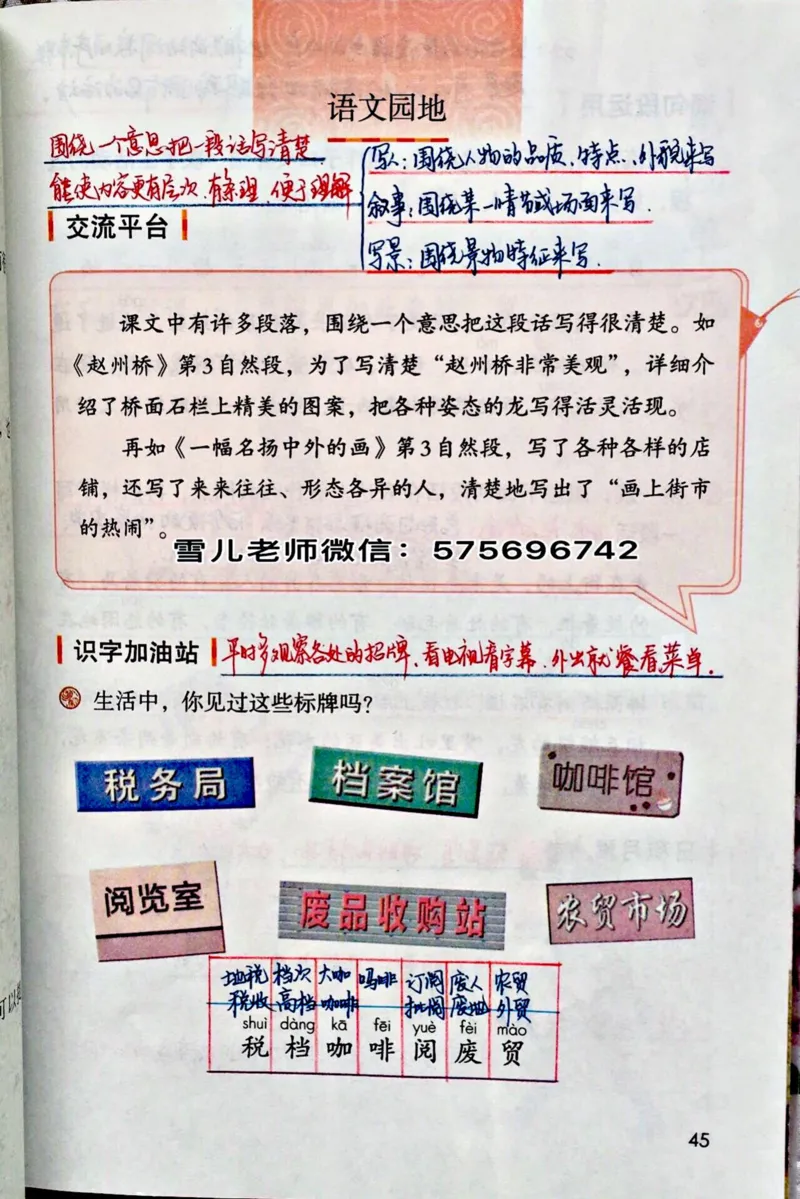 语文园地
围绕一个意思把一段话写清楚
能使内容更有层次、有条理、便于理解
写人:围绕人物的品质、特点、外貌来写
叙事:围绕某一情节或场面来写.
写景:围绕景物特征来写.
交流平台
课文中有许多段落，围绕一个意思把这段话写得很清楚。如
《赵州桥》第3自然段，为了写清楚“赵州桥非常美观”，详细介
绍了桥面石栏上精美的图案，把各种姿态的龙写得活灵活现。
再如《一幅名扬中外的画》第3自然段，写了各种各样的店
铺，还写了来来往往、形态各异的人，清楚地写出了“画上街市
的热闹”。
雪儿老师微信：575696742
识字加油站
平时多观察各处的招牌、看电视看字幕、外出就餐看菜单.
生活中，你见过这些标牌吗?
税务局 档案馆 咖啡馆
阅览室 废品收购站 农贸市场
地税 档次 大咖 吗啡 订阅 废人 农贸
税收 高档 咖啡 批阅 废地 外贸
shuì dàng kā fēi yuè fèi mào
税 档 咖 啡 阅 废 贸
45